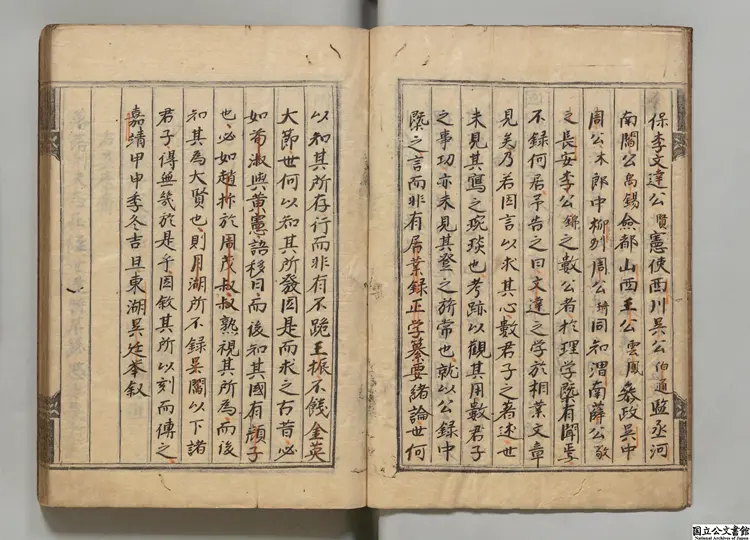 保李文達公賢憲使西川吳公伯通監丞河
南閻公禹錫僉都山西王公雲鳳叅政吳中
周公木郎中柳州周公琦同知渭南薛公敬
之長安李公錦之數公者於理学既有聞焉
不錄何居予告之曰文達之学於相業文章
見矣乃若因言以求其心數君子之著述世
未見其寫之琬琰也考跡以觀其用數君子
之事功亦未見其登之旂常也就以公錄中
槩之言而非有居業錄正学纂要諸論世何
以知其所存行而非有不跪王振不餞金英
大節世何以知其所發因是而求之古昔必
如荀淑與黄憲語移日而後知其國有顔子
也必如趙抃於周茂叔叔熟視其所為而後
知其為大賢也則月湖所不錄吳閻以下諸
君子得無幾於是乎因敘其所以刻而傳之
嘉靖甲申季冬吉旦東湖吳廷舉叙
国立公文書館
National Archives of Japan